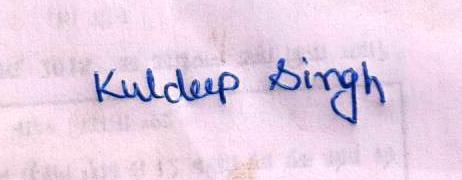 Kuldeep Singh